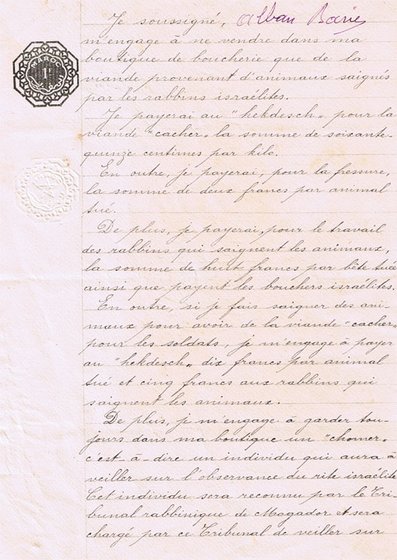 Je soussigné, Alban Barie
m'engage à ne vendre dans ma
boutique de boucherie que de la
viande provenant d'animaux saignés
par les rabbins israélites.
Je payerai au "hekdesch" pour la
viande "cacher" la somme de soixante-
quinze centimes par kilo.
En outre, je payerai, pour la fressure,
la somme de deux francs par animal
tué.
De plus, je payerai, pour le travail
des rabbins qui saignent les animaux,
la somme de huit francs par bête tuée
ainsi que payent les bouchers israélites.
En outre, si je fais saigner des ani-
maux pour avoir de la viande "cacher"
pour les soldats, je m'engage à payer
au "hekdesch" dix francs par animal
tué et cinq francs aux rabbins qui
saignent les animaux.
De plus, je m'engage à garder tou-
jours dans ma boutique un "chomer"
c'est-à-dire un individu qui aura à
veiller sur l'observance du rite israélite
Cet individu sera reconnu par le Tri-
bunal rabbinique de Mogador et sera
chargé par ce Tribunal de veiller sur